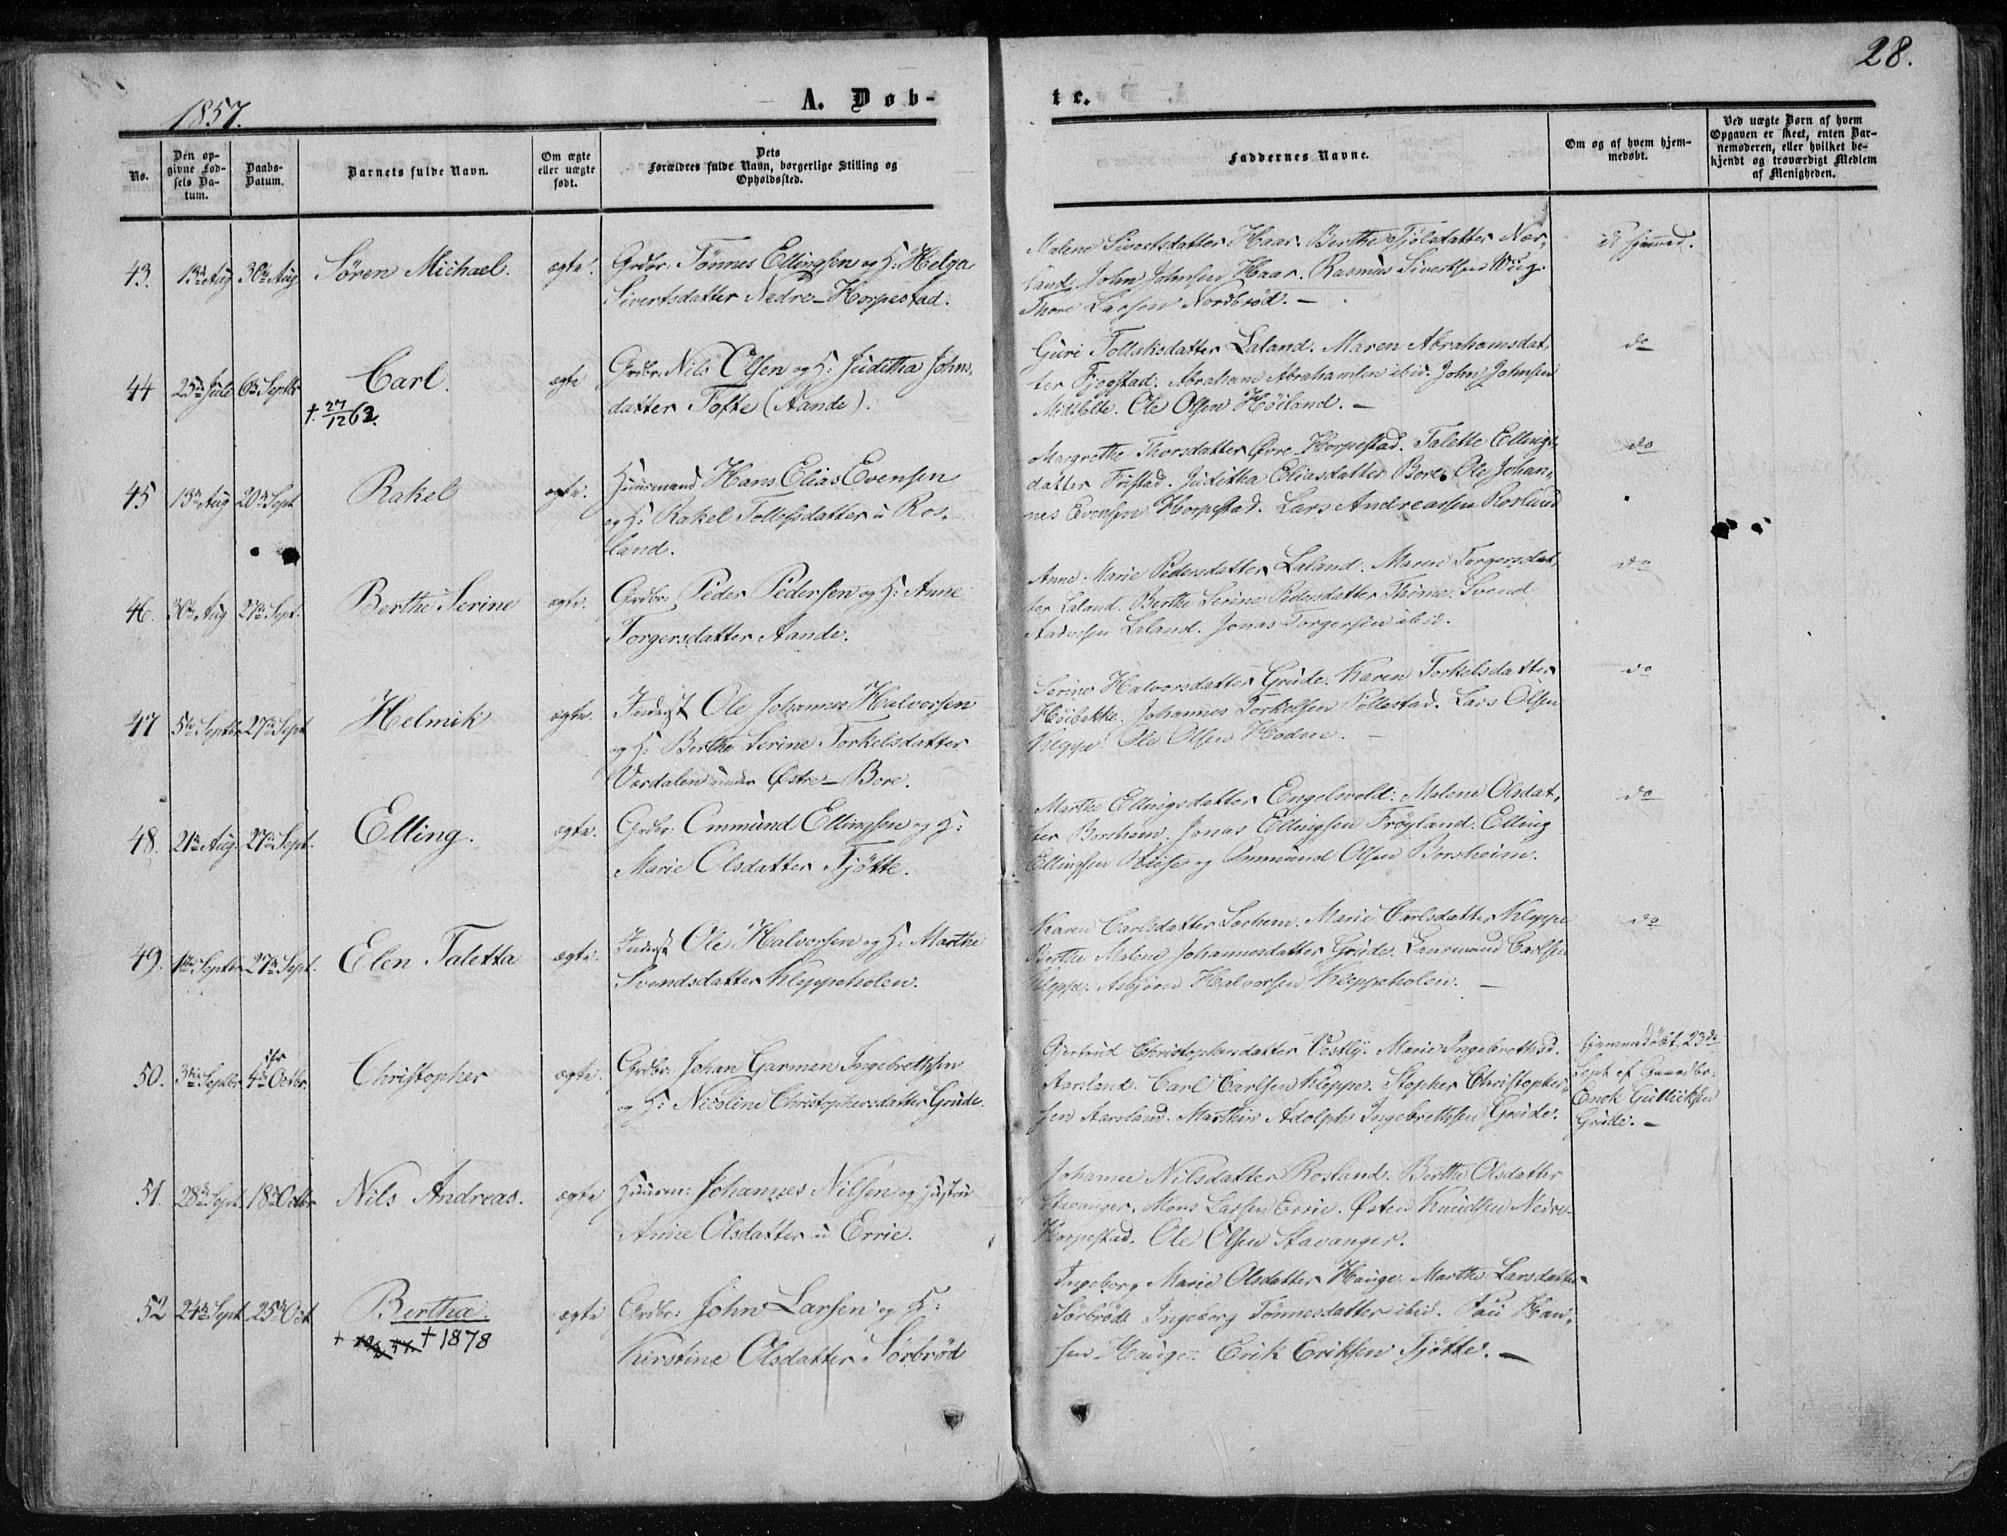 28.
1857.
A. Døb-
te.
No.
Den op-
givne Fød-
sels Da-
tum.
Daabs-
Datum.
Barnets fulde Navn.
Om ægte
eller uægte
født.
Dets
Forældres fulde Navn, borgerlige Stilling og
Opholdssted.
Faddernes Navne.
Om og af hvem hjem-
medøbt.
Ved uægte Børn af hvem
Opgaven er skeet, enten Bar-
nemoderen, eller hvilket be-
kjendt og troværdigt Medlem
af Menigheden.
43. 13de Aug 30te Aug Søren Michael. ægte.
Grdbr: Tønnes Ellingsen og H: Helga
Sivertsdatter Nedre-Horpestad.
Malene Sivertsdatter Haar. Berthe Tjølsdatter Nær-
land. John Johnsen Haar. Rasmus Sivertsen
Thore Larsen Nordbrød. —
44 25de Juli 6te Septbr Carl. ægte
† 27/12 62.
Grdbr. Nils Olsen og H: Juditha Johns
datter Tofte (Aande).
Guri Tollaksdatter Laland. Maren Abrahamsdat
ter Fjogstad. Abraham Abrahamsen ibid. John Johnsen
Ole Olsen Høiland. —
do
45 15de Aug 20de Sept Rakel ægte.
Huusmand Hans Elias Evensen
og H: Rakel Tollefsdatter u Ros-
land.
Margrethe Thorsdatter Øvre-Horpestad. Talette Ellings
datter Fristad. Juditha Eliasdatter Bore. Ole Johan-
nes Evensen Horpestad. Lars Andreassen Rosland
do
46. 30te Aug 27de Sept. Berthe Serine ægte.
Grdbr: Peder Pedersen og H: Anne
Torgersdatter Aande.
Anne Marie Pedersdatter Laland. Maren Torgersdat-
ter Laland. Berthe Serine Pedersdatter Thime. Svend
Aadnesen Laland. Jonas Torgersen ibid.
do
47 5te Septbr 27de Sept Helmik ægte.
Inderst Ole Johannes Halvorsen
og H: Berthe Serine Torkelsdatter
Verdalen under Østre-Bore.
Serine Halvorsdatter Grude. Karen Torkelsdatter
Høibakke. Johannes Torkelsen Pollestad. Lars Olsen
Kleppe. Ole Olsen Hodne. —
do
48. 21de Aug. 27de Sept. Elling. ægte.
Grdbr: Ommund Ellingsen og H:
Marie Olsdatter Tjøtte.
Marthe Ellingsdatter Engelsvold. Malene Olsdat,
ter Borsheim. Jonas Ellingsen Frøyland. Elling
Ellingsen og Ommund Olsen Borsheim.
do
49. 1ste Septbr 27de Sept. Elen Taletta ægte.
Inderst Ole Halvorsen og H: Marthe
Svendsdatter Kleppeholen.
Karen Carlsdatter Sorhem. Marie Carlsdatter Kleppe
Berthe Malene Johannesdatter Grude. Carlsen
Kleppe. Asbjørn Halvorsen Kleppeholen. —
do
50. 3die Septbr. 4de Octbr. Christopher ægte.
Grdbr: Johan Garmen Ingebrethsen
og H: Nicoline Christophersdatter Grude.
Gjertrud Christophersdatter Vestly. Marie Ingebrethsd.
Aarsland. Carl Carlsen Kleppe. Stopher Christopher-
sen Aarsland. Marthin Adolph Ingebrethsen Grude.
hjemmedøbt 23de
Sept af Gaardbr:
Enok Gulliksen
Grude. —
51. 28de Sept. 18de Octbr Nils Andreas. ægte
Huusm: Johannes Nilsen og Hustru
Anne Olsdatter u Errie.
Johanne Nilsdatter Rosland. Berthe Olsdatter
Stavanger. Mons Larsen Errie. Østen Knudsen Nedre-
Horpestad. Ole Olsen Stavanger.
52 24de Sept 25de Oct Bertha. ægte
† 1878
Grdbr: John Larsen og H:
Kirstine Olsdatter Sørbrød
Ingeborg Marie Olsdatter Hauge. Marthe Larsdatter
Sørbrød. Ingeborg Tønnesdatter ibid. Han-
sen Hauge. Erik Eriksen Tjøtte. —